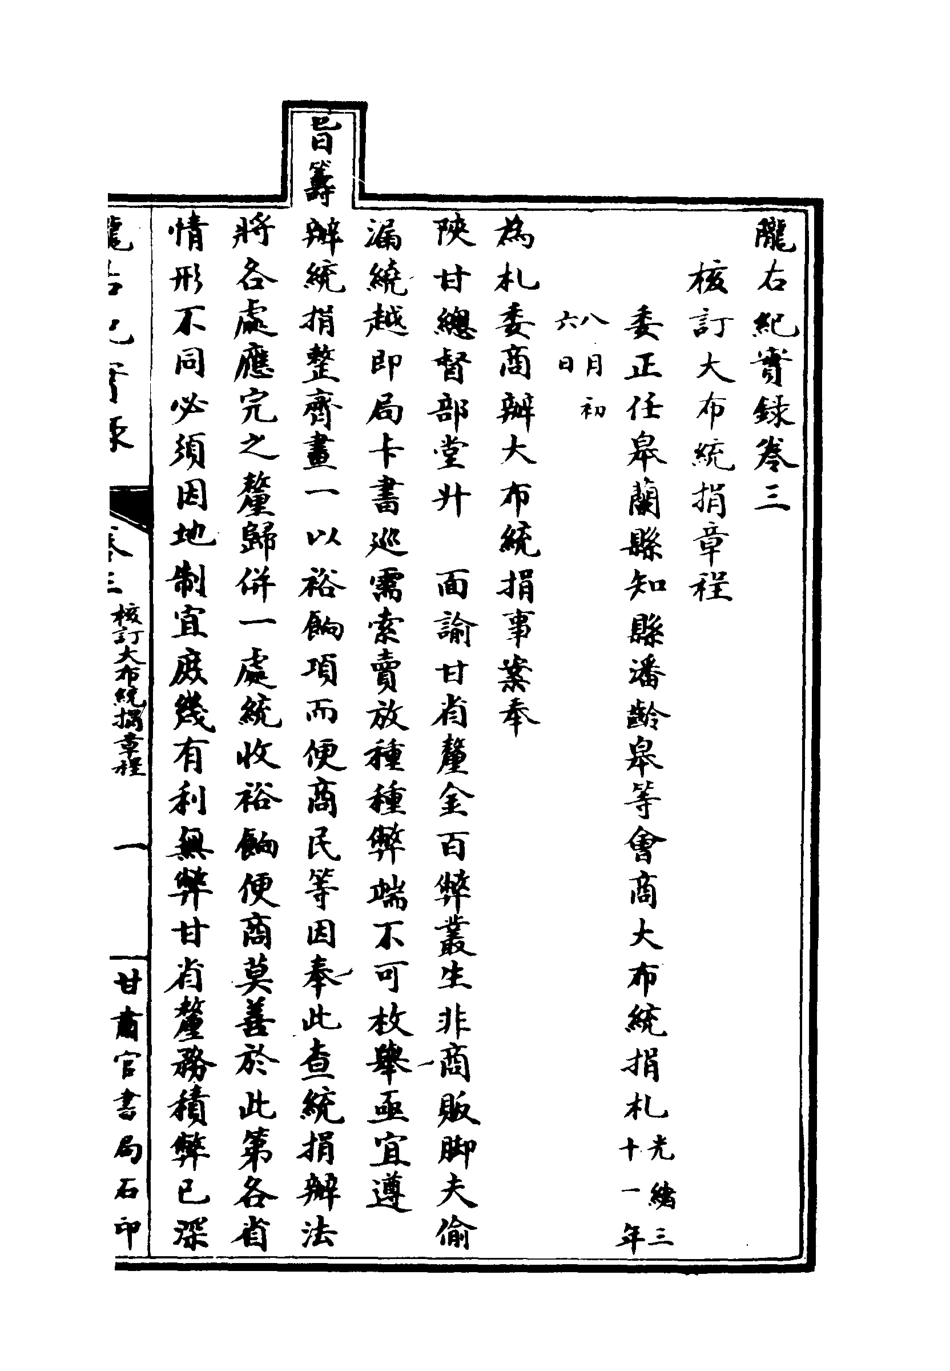 隴右紀實錄卷三
核訂大布統捐章程
委正任皋蘭縣知縣潘齡皋等會商大布統捐札光緒三十一年
八月初六日
為札委商辦大布統捐事案奉
陝甘總督部堂升　面諭甘省釐金百弊叢生非商販脚夫偷
漏繞越即局卡書巡需索賣放種種弊端不可枚舉亟宜遵
旨籌辦統捐整齊畫一以裕餉項而便商民等因奉此查統捐辦法
將各處應完之釐歸併一處統收裕餉便商莫善於此第各省
情形不同必須因地制宜庶幾有利無弊甘省釐務積弊已深
隴右紀實錄　卷三　核訂大布統捐章程　一　甘肅官書局石印